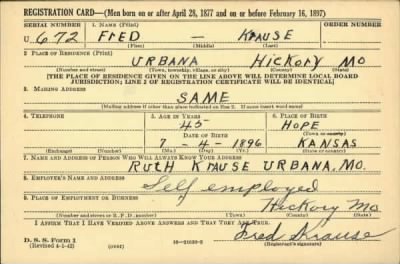 REGISTRATION CARD—(Men born on or after April 28, 1877 and on or before February 16, 1897)
SERIAL NUMBER 1. NAME (Print)
U 672 FRED — KRAUSE
(First) (Middle) (Last)
2. PLACE OF RESIDENCE (Print)
URBANA Hickory MO
(Number and street) (Town, township, village, or city) (County) (State)
[THE PLACE OF RESIDENCE GIVEN ON THE LINE ABOVE WILL DETERMINE LOCAL BOARD
JURISDICTION; LINE 2 OF REGISTRATION CERTIFICATE WILL BE IDENTICAL]
3. MAILING ADDRESS
SAME
[Mailing address if other than place indicated on line 2. If same insert word same]
4. TELEPHONE 5. AGE IN YEARS 6. PLACE OF BIRTH
45 HOPE
DATE OF BIRTH (Town or county)
7 - 4 - 1896 KANSAS
(Exchange) (Number) (Mo.) (Day) (Yr.) (State or country)
7. NAME AND ADDRESS OF PERSON WHO WILL ALWAYS KNOW YOUR ADDRESS
RUTH KRAUSE URBANA, MO.
8. EMPLOYER'S NAME AND ADDRESS
Self employed
9. PLACE OF EMPLOYMENT OR BUSINESS
Hickory Mo
(Number and street or R. F. D. number) (Town) (County) (State)
I AFFIRM THAT I HAVE VERIFIED ABOVE ANSWERS AND THAT THEY ARE TRUE.
D. S. S. Form 1
(Revised 4-1-42) (over) 16—21630-2
Fred Krause
(Registrant's signature)